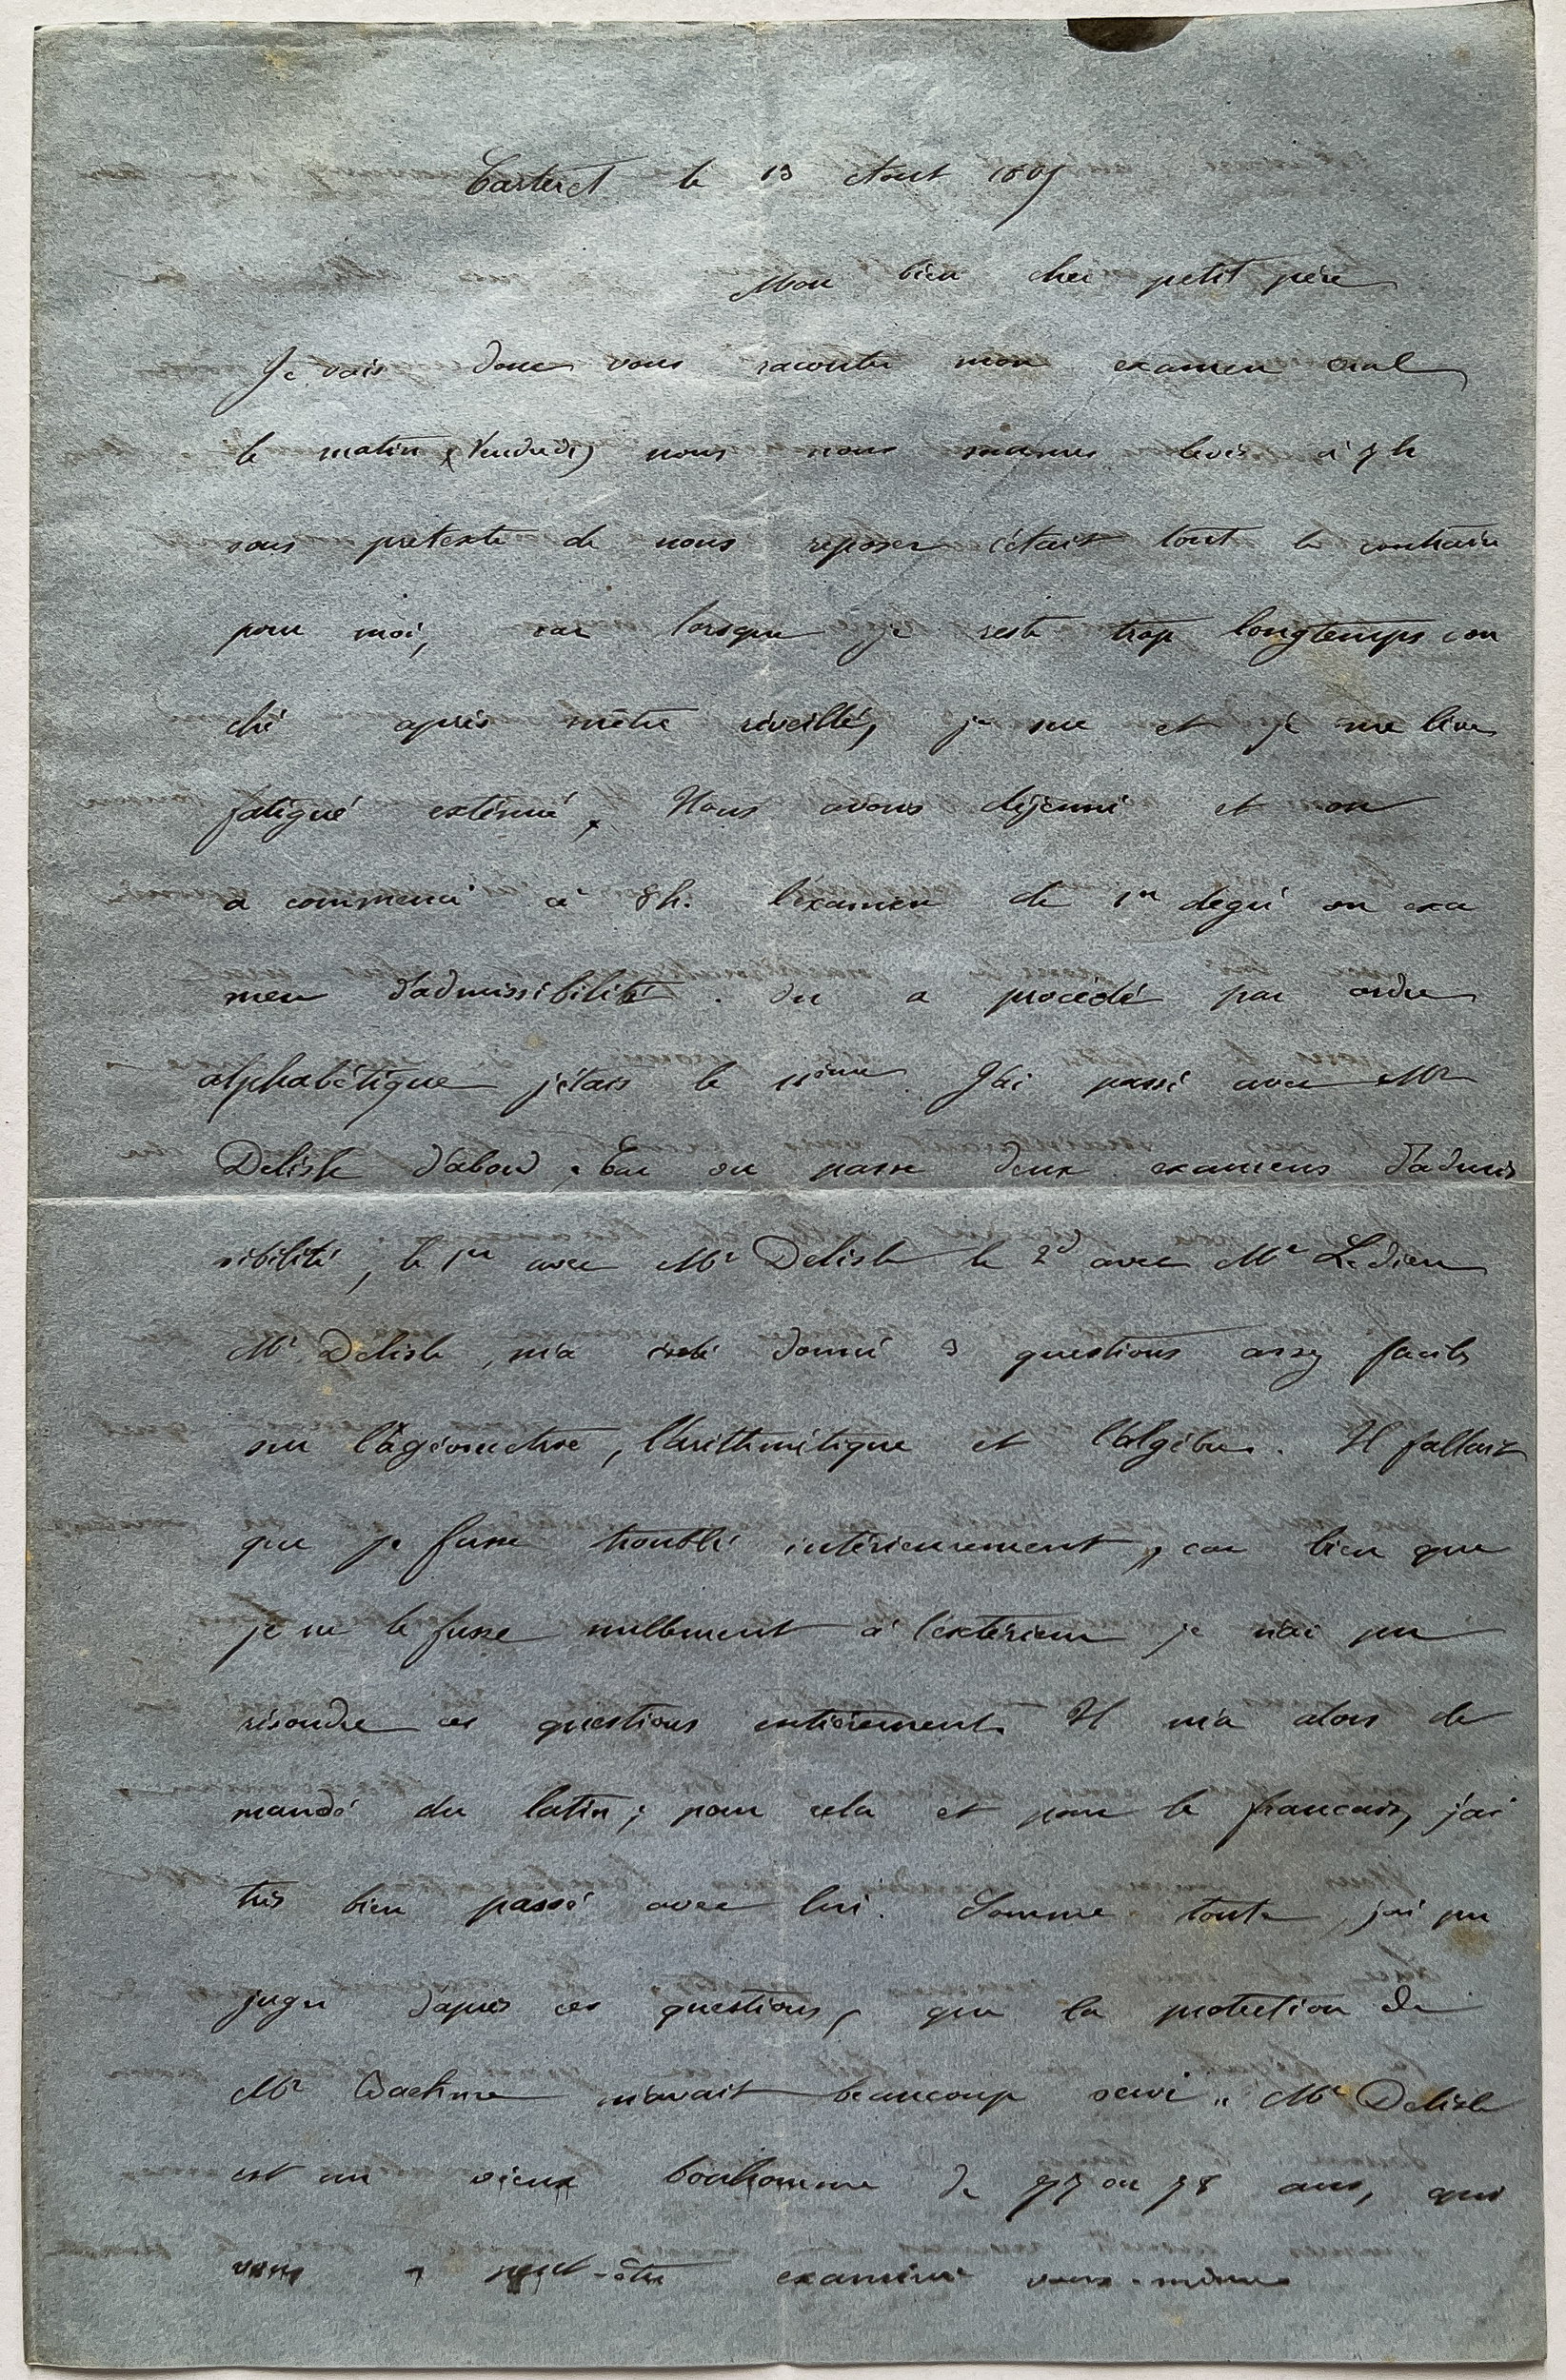 Carteret le 13 Août
Mon bien cher petit père
Je vais donc vous raconter mon examen oral
le matin (Vendredi) nous nous sommes levés à 7 h
sous pretexte de nous reposer c'était tout le contraire
pour moi, car lorsque je reste trop longtemps cou
ché après m'être réveillé, je sue et je me lève
fatigué exténué, Nous avons déjeuné et on
a commencé à 8h. l'examen de 1er degré ou exa
men d'admissibilité. On a procédé par ordre
alphabétique j'étais le 11ème. J'ai passé avec Mr
Delisle d'abord, Car on passe deux examens d'admis
sibilité, le 1er avec Mr Delisle le 2d avec Mr Ledieu
Mr Delisle, m'a donné 3 questions assez faciles
sur la géométrie, l'arithmétique et l'algèbre. Il fallait
que je fusse troublé intérieurement, car bien que
je ne le fusse nullement à l'extérieur je n'ai pu
résoudre ces questions entièrement. Il m'a alors de
mandé du latin; pour cela et pour le francais, j'ai
très bien passé avec lui. Somme toute, j'ai pu
juger d'après ces questions, que la protection de
Mr m'avait beaucoup servi. Mr Delisle
est un vieux bonhomme de 77 ou 78 ans, qui
vous a peut-être examiné vous-même